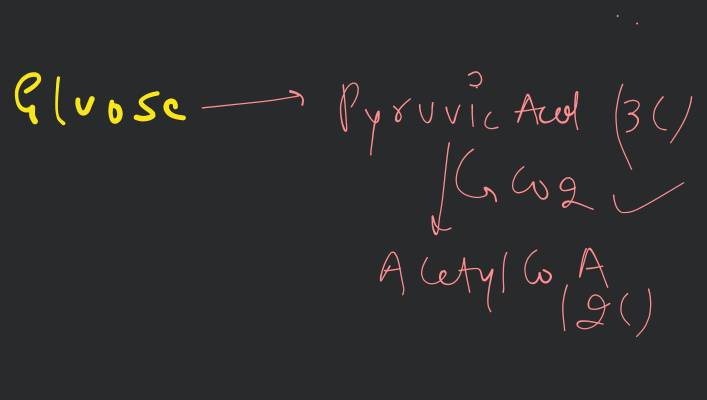 Gluose → Pyruvic Acid (3C)
CO2 ✓
Acetyl Co A
(2C)